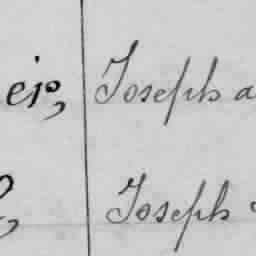 eir, Joseph a
Joseph